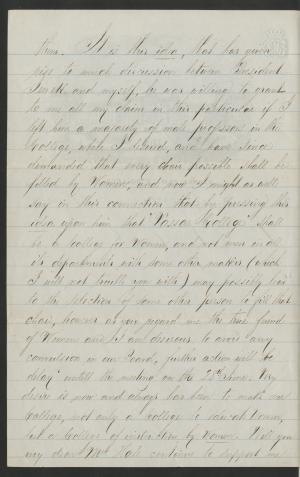 them. It is this idea, that has given
rise to much discussion between President
Jewett and myself, he was willing to grant
to me all my claim in this particular if I
left him a majority of male professors in the
College, while I desired, and have since
demanded that every chair possible shall be
filled by Women, and now I might as well
say in this connection that by pressing this
idea upon him that "Vassar College" shall
be a College for Women, and not men in all
its departments with some other matters (which
I will not trouble you with) may possibly lead
to the selection of some other person to fill that
chair, however as you regard me the true friend
of Women and I am desirous to avoid any
convulsion in our Board, further action will be
delay untill the meeting on the 28th June. My
desire is now and always has been to make our
College, not only a college to educate Women,
but a College of instruction by Women. Will you
my dear Mrs Hale continue to support me